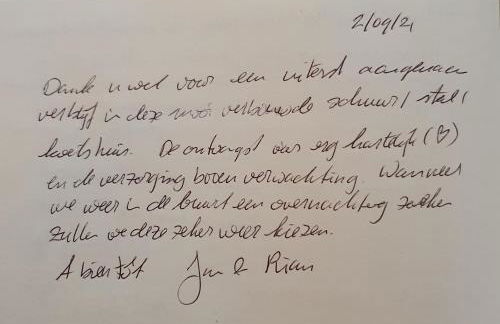 2/09/21
Dank u wel voor een uiterst aangenaam
verblijf in deze mooi verbouwde schuur / stal /
koetshuis. De ontvangst was erg hartelijk (♡)
en de verzorging boven verwachting. Wanneer
we weer in de buurt een overnachting zoeken
zullen we deze zeker weer kiezen.
A bientôt Jan & Rian